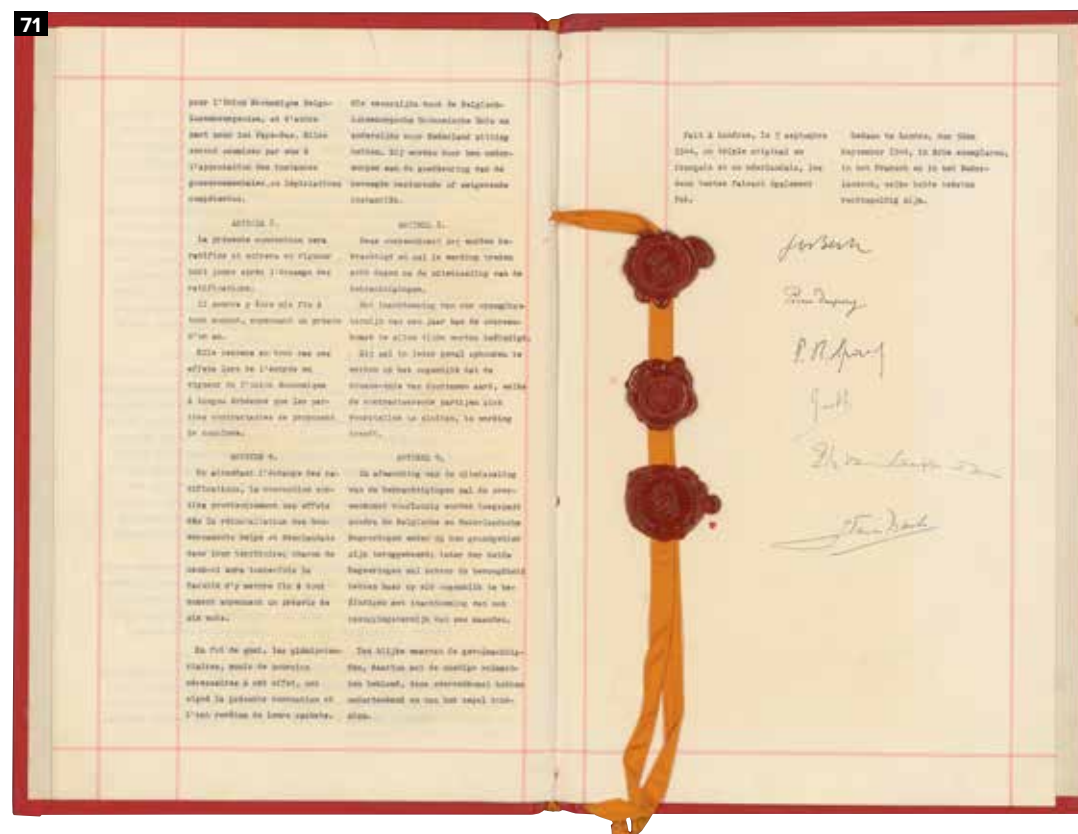 71
pour l'Union Economique Belgo-
Luxembourgeoise, et d'autre
part pour les Pays-Bas. Elles
seront soumises par eux à
l'approbation des instances
gouvernementales ou législatives
compétentes.
ARTICLE 7.
La présente convention sera
ratifiée et entrera en vigueur
huit jours après l'échange des
ratifications.
Il pourra y être mis fin à
tout moment, moyennant un préavis
d'un an.
Elle cessera en tout cas ses
effets lors de l'entrée en
vigueur de l'union économique
à longue échéance que les par-
ties contractantes se proposent
de conclure.
En attendant l'échange des ra-
tifications, la convention sor-
tira provisoirement ses effets
dès la réinstallation des Gou-
vernements Belge et Néerlandais
dans leur territoire; chacun de
ceux-ci aura toutefois la
faculté d'y mettre fin à tout
moment moyennant un préavis de
six mois.
En foi de quoi, les plénipoten-
tiaires, munis de pouvoirs
nécessaires à cet effet, ont
signé la présente convention et
l'ont revêtue de leurs cachets.
die eenerzijds door de Belgisch-
Luxemburgsche Economische Unie en
anderzijds door Nederland zitting
hebben. Zij worden door hen onder-
worpen aan de goedkeuring van de
bevoegde besturende of wetgevende
instanties.
Deze overeenkomst zal worden be-
krachtigd en zal in werking treden
acht dagen na de uitwisseling van de
bekrachtigingen.
Met inachtneming van een opzeggings-
termijn van een jaar kan de overeen-
komst te allen tijde worden beëindigd.
Zij zal in ieder geval ophouden te
werken op het oogenblik dat de
van duurzamen aard, welke
de contracteerende partijen zich
voorstellen te sluiten, in werking
treedt.
In afwachting van de uitwisseling
van de bekrachtigingen zal de over-
eenkomst voorloopig worden toegepast
zoodra de Belgische en Nederlandsche
Regeeringen weder op hun grondgebied
zijn teruggekeerd; ieder der beide
Regeeringen zal echter de bevoegdheid
hebben haar op elk oogenblik te be-
ëindigen met inachtneming van een
opzeggingstermijn van zes maanden.
Ten blijke waarvan de gevolmachtig-
den, daartoe met de noodige volmach-
ten bekleed, deze overeenkomst hebben
onderteekend en van het zegel voor-
zien.
Fait à Londres, le 5 septembre
1944, en triple original en
français et en néerlandais, les
deux textes faisant également
foi.
Gedaan te Londen, den 5den
September 1944, in drie exemplaren,
in het Fransch en in het Neder-
landsch, welke beide teksten
rechtsgeldig zijn.